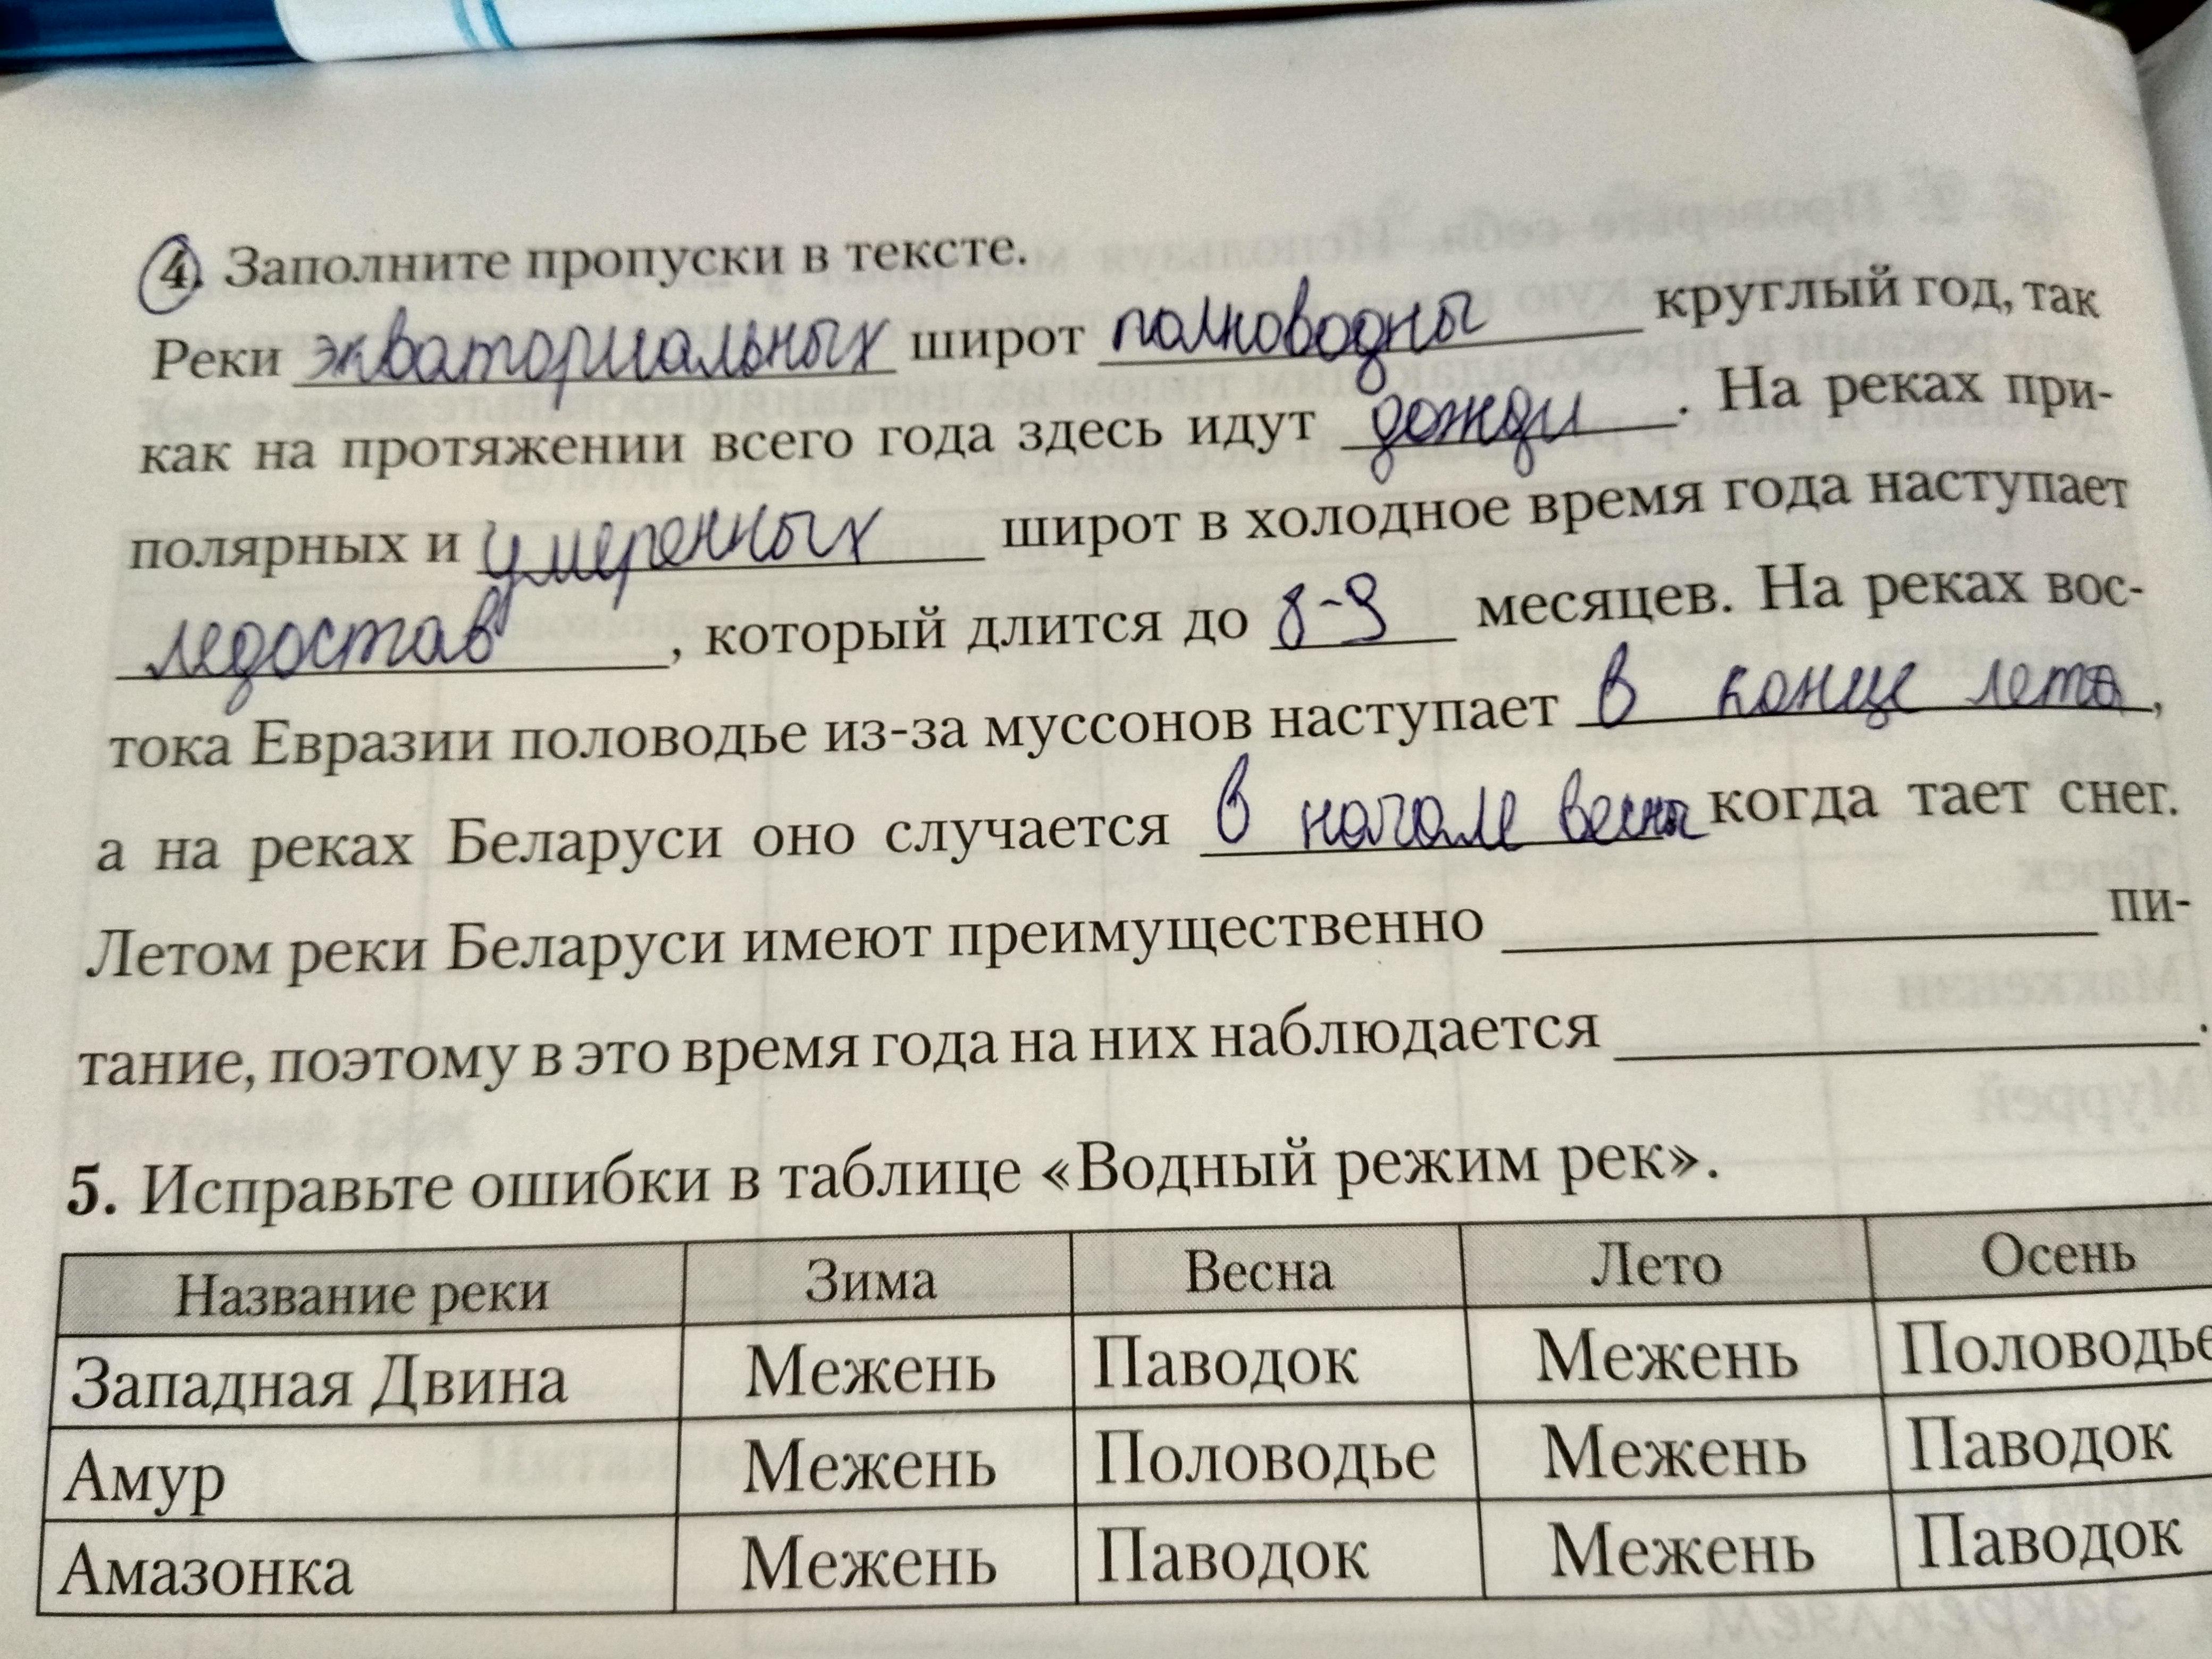 4. Заполните пропуски в тексте.
Реки экваториальных широт полноводны круглый год, так
как на протяжении всего года здесь идут дожди. На реках при-
полярных и умеренных широт в холодное время года наступает
ледостав, который длится до 8-9 месяцев. На реках вос-
тока Евразии половодье из-за муссонов наступает в конце лета,
а на реках Беларуси оно случается в начале весны когда тает снег.
Летом реки Беларуси имеют преимущественно ____ пи-
тание, поэтому в это время года на них наблюдается ____.
5. Исправьте ошибки в таблице «Водный режим рек».
Название реки Зима Весна Лето Осень
Западная Двина Межень Паводок Межень Половодье
Амур Межень Половодье Межень Паводок
Амазонка Межень Паводок Межень Паводок